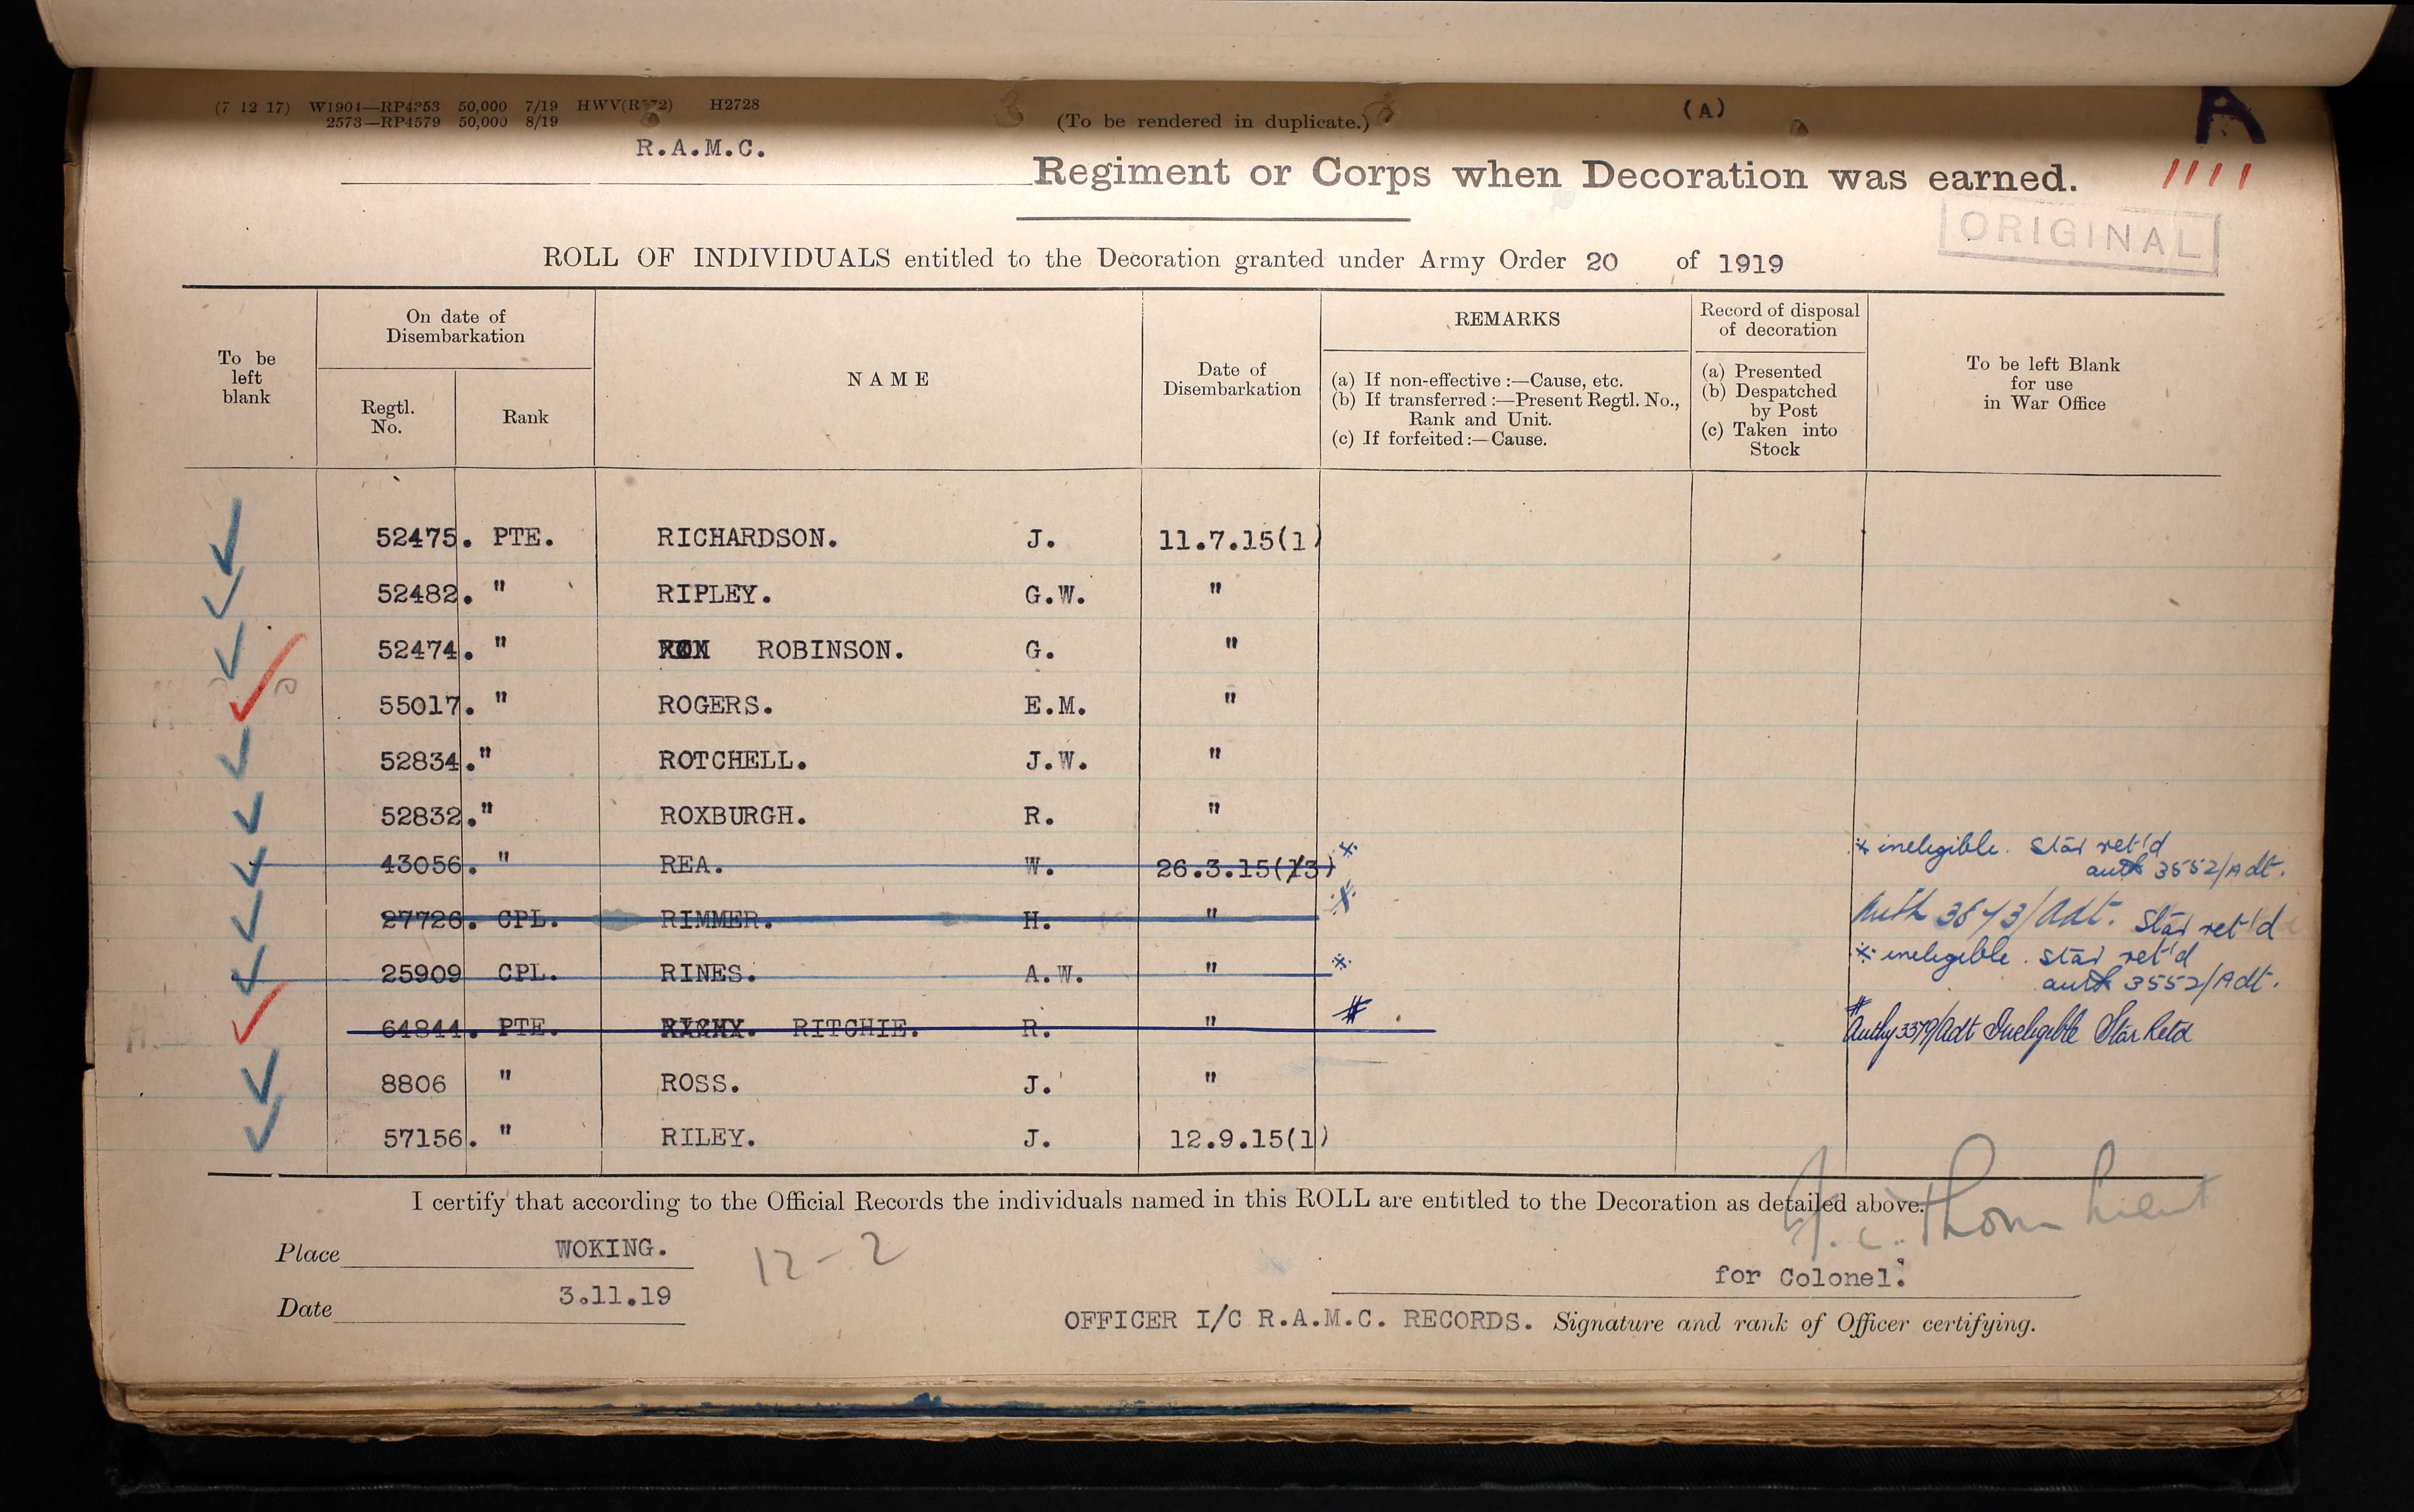 (7 12 17) W1904—RP4353 50,000 7/19 H2728
2573—RP4579 50,000 8/19
(To be rendered in duplicate.)
(A)
A
R.A.M.C.
Regiment or Corps when Decoration was earned.
1111
ORIGINAL
ROLL OF INDIVIDUALS entitled to the Decoration granted under Army Order 20 of 1919
To be left blank
On date of Disembarkation
Regtl. No.
Rank
NAME
Date of Disembarkation
REMARKS
(a) If non-effective :—Cause, etc.
(b) If transferred :—Present Regtl. No., Rank and Unit.
(c) If forfeited :—Cause.
Record of disposal of decoration
(a) Presented
(b) Despatched by Post
(c) Taken into Stock
To be left Blank for use in War Office
52475. PTE. RICHARDSON. J. 11.7.15(1)
52482. " RIPLEY. G.W. "
52474. " ROBINSON. G. "
55017. " ROGERS. E.M. "
52834. " ROTCHELL. J.W. "
52832. " ROXBURGH. R. "
43056. " REA. W. 26.3.15(13) * * ineligible. Star ret'd
auth 3552/Adt.
27726. CPL. RIMMER. H. " * Auth /Adt. Star ret'd
25909 CPL. RINES. A.W. " * * ineligible. Star ret'd
auth 3552/Adt.
64844. PTE. RITCHIE. R. " # # Authy 3379/Adt Ineligible Star Retd
8806 " ROSS. J. "
57156. " RILEY. J. 12.9.15(1)
I certify that according to the Official Records the individuals named in this ROLL are entitled to the Decoration as detailed above.
Place WOKING.
12-2
Thom Lieut
for Colonel.
Date 3.11.19
OFFICER I/C R.A.M.C. RECORDS. Signature and rank of Officer certifying.